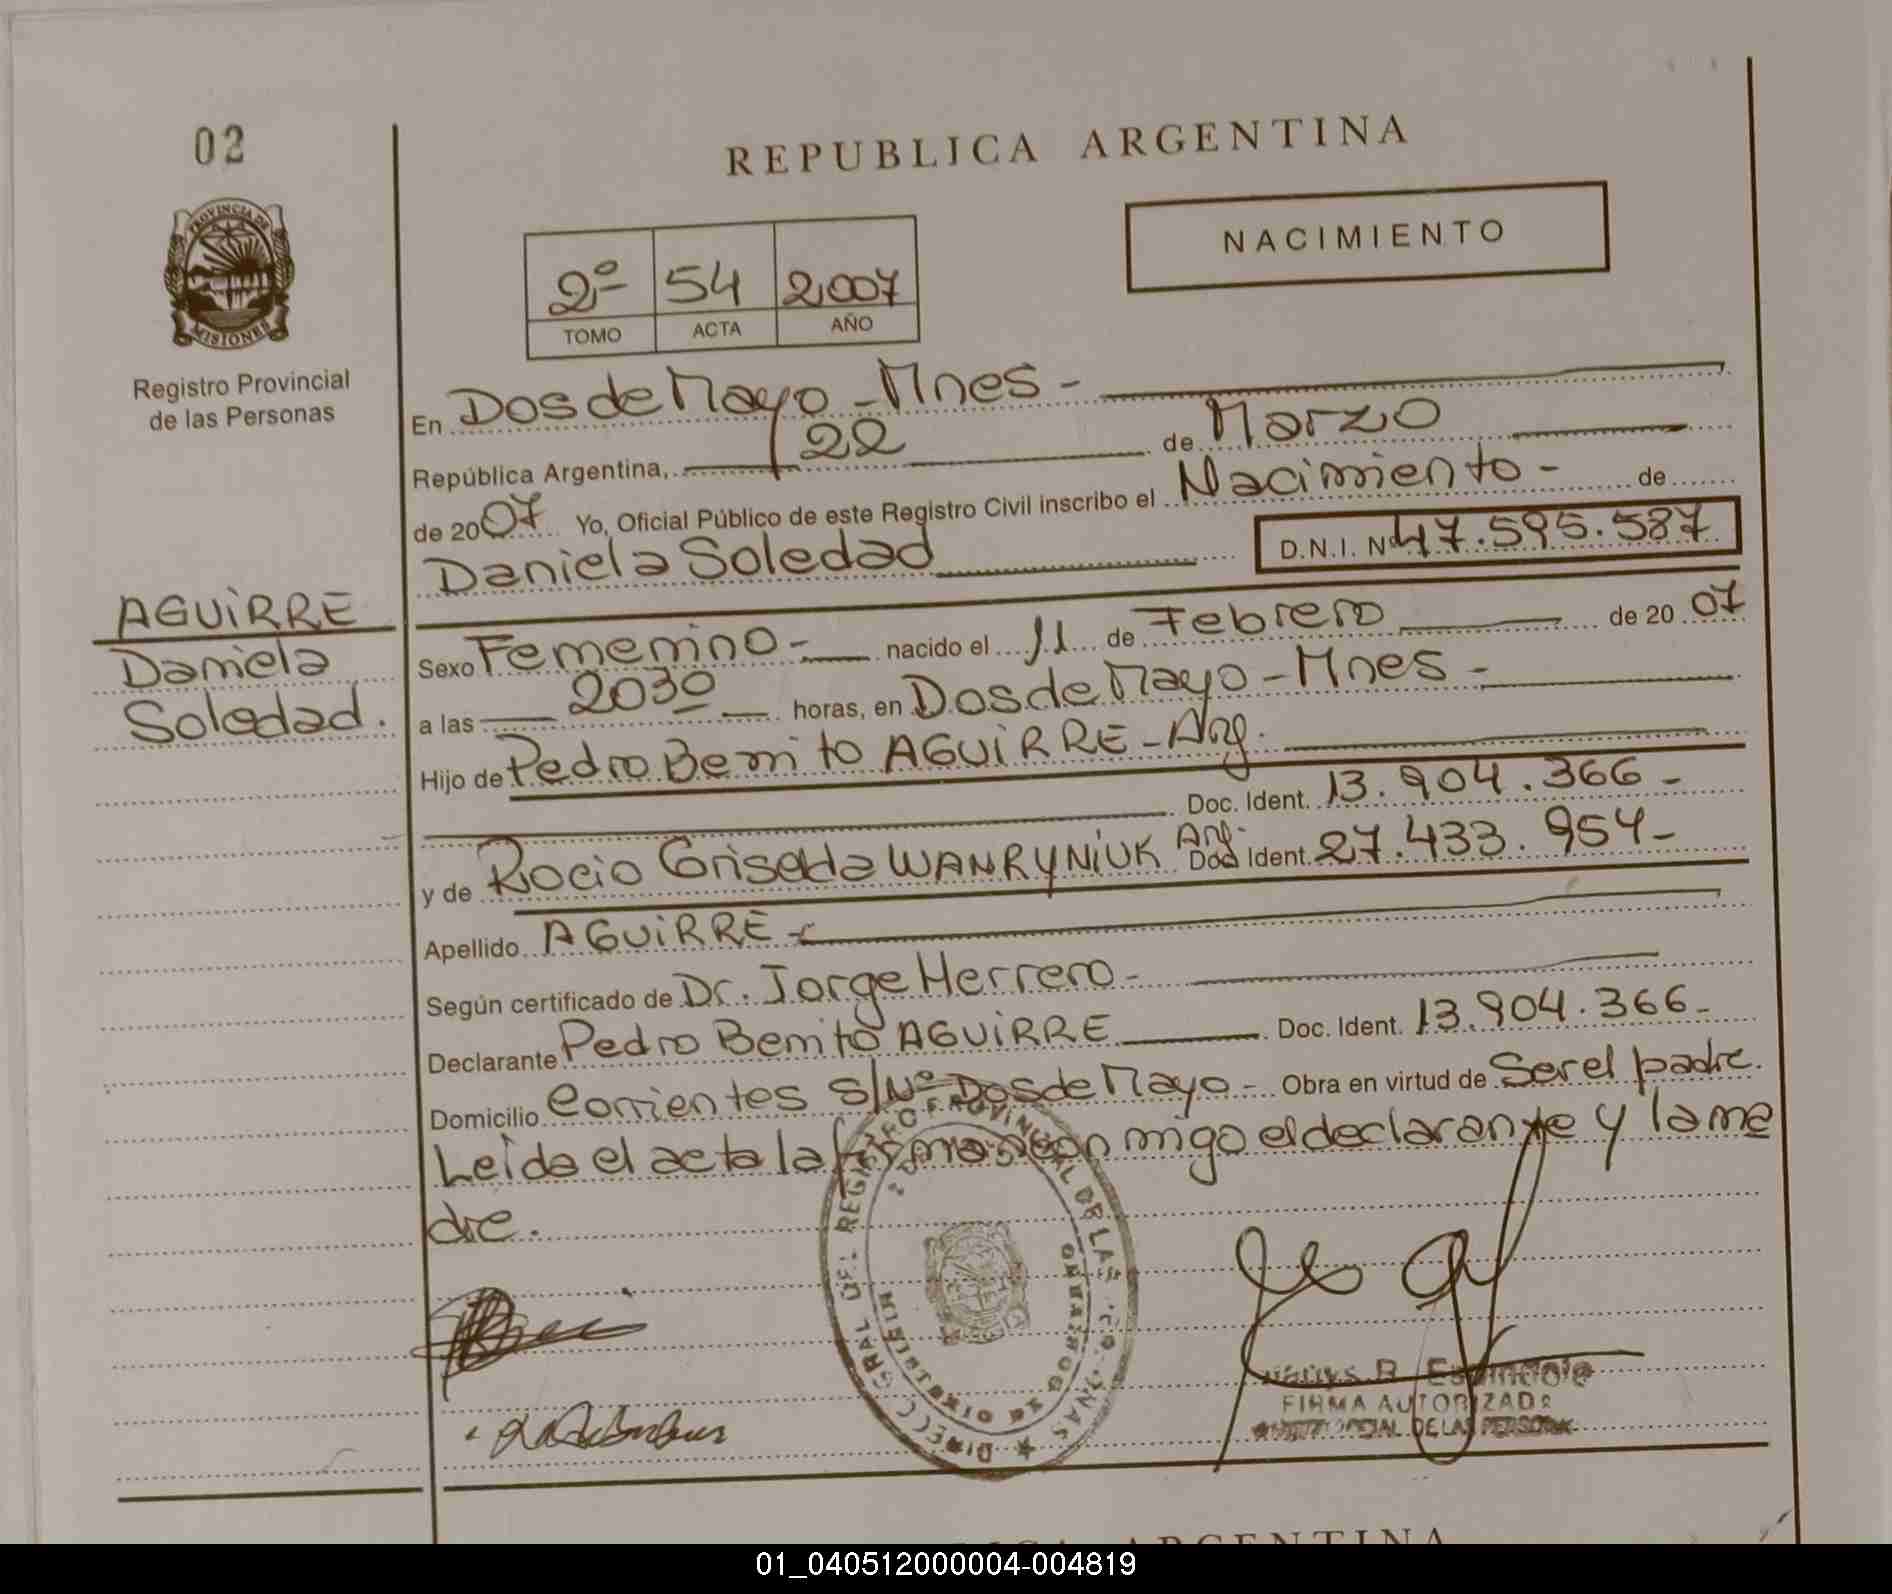 02
REPUBLICA ARGENTINA
PROVINCIA DE
MISIONES
NACIMIENTO
2º 54 2007
TOMO ACTA AÑO
Registro Provincial
de las Personas
En Dos de Mayo - Mnes -
República Argentina, 22 de Marzo
de 2007 Yo, Oficial Público de este Registro Civil inscribo el Nacimiento - de
Daniela Soledad D.N.I. Nº 47.595.587
AGUiRRE
Daniela
Soledad.
Sexo Femenino - nacido el 11 de Febrero de 2007
a las 2030 horas, en Dos de Mayo - Mnes -
Hijo de Pedro Benito AGUiRRE - Arg.
Doc. Ident. 13.904.366 -
y de Rocio Griselda WANRYNiUK Arg. Doc Ident. 27.433.954 -
Apellido AGUiRRE -
Según certificado de Dr. Jorge Herrero -
Declarante Pedro Benito AGUiRRE Doc. Ident. 13.904.366 -
Domicilio Corrientes s/Nº Dos de Mayo - Obra en virtud de Ser el padre.
Leida el acta la firman conmigo el declarante y la ma
dre.
FIRMA AUTORIZADA
DE LAS PERSONAS
REPUBLICA ARGENTINA
01_040512000004-004819